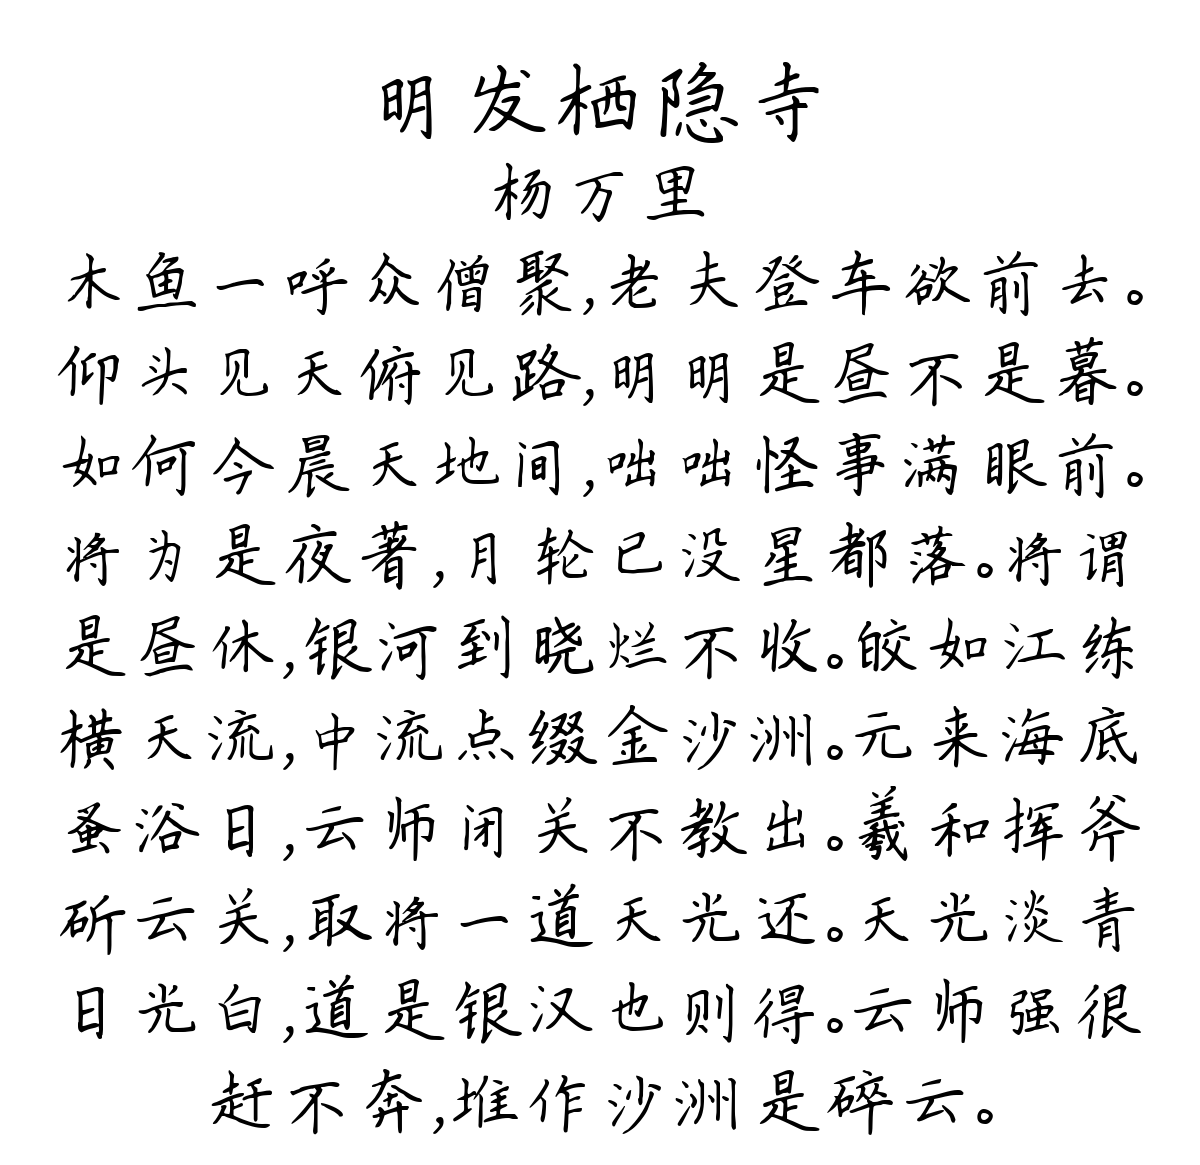 明发栖隐寺
杨万里
木鱼一呼众僧聚,老夫登车欲前去。
仰头见天俯见路,明明是昼不是暮。
如何今晨天地间,咄咄怪事满眼前。
将为是夜著,月轮已没星都落。将谓
是昼休,银河到晓烂不收。皎如江练
横天流,中流点缀金沙洲。元来海底
蚤浴日,云师闭关不教出。羲和挥斧
斫云关,取将一道天光还。天光淡青
日光白,道是银汉也则得。云师强很
赶不奔,堆作沙洲是碎云。